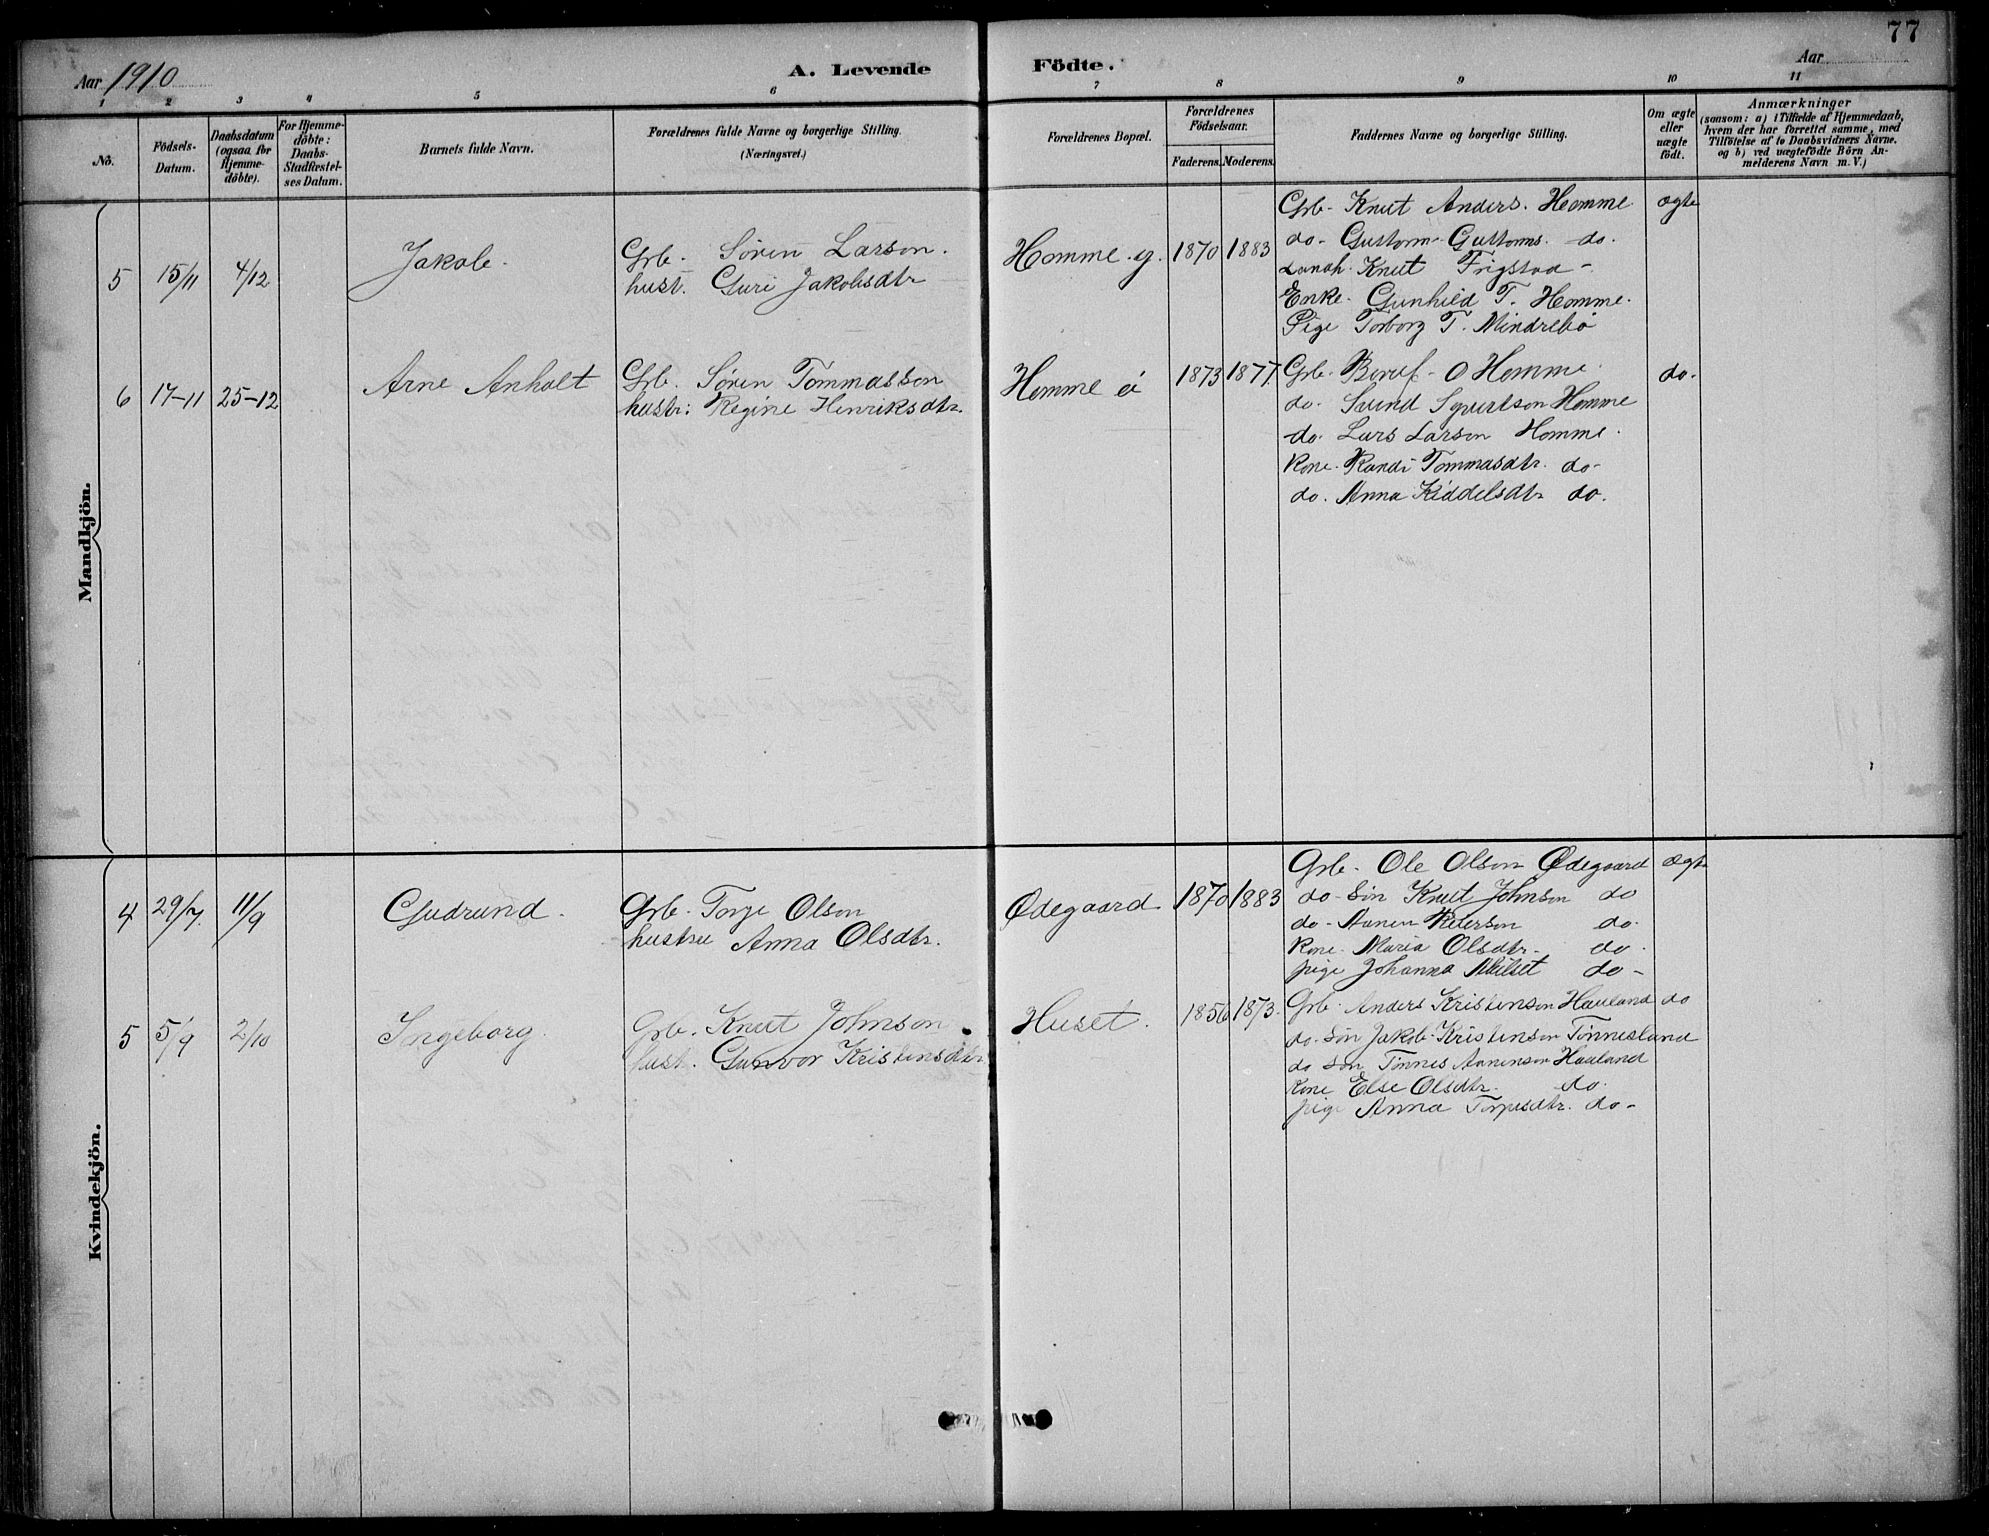 77
Aar 1910
A. Levende Födte.
Aar
1 2 3 4 5 6 7 8 9 10 11
No.
Födsels-Datum.
Daabsdatum (ogsaa for Hjemme-döbte).
For Hjemme-döbte: Daabs-Stadfæstel-ses Datum.
Barnets fulde Navn.
Forældrenes fulde Navne og borgerlige Stilling.
(Næringsvei.)
Forældrenes Bopæl.
Forældrenes Födselsaar.
Faderens. Moderens.
Faddernes Navne og borgerlige Stilling.
Om ægte eller uægte födt.
Anmærkninger
(saasom: a) i Tilfælde af Hjemmedaab, hvem der har forrettet samme, med Tilföielse af to Daabsvidners Navne, og b) ved uægtefödte Börn Anmelderens Navn m. V.)
Mandkjön.
5 15/11 4/12 Jakob. Grb. Søren Larson. Homme. g. 1870 1883 ægte
hust. Guri Jakobsdtr
Grb. Knut Anders. Homme
do. Guttorm Guttorms. do.
Landh. Knut Frigstad
Enke. Gunhild T. Homme.
Pige Torborg T. Mindrebø
6 17-11 25-12 Arne Anholt Grb. Søren Tommasson Homme 1873 1877. do.
hustr: Regine Henriksdtr.
Grb. O Homme.
do. Homme
do. Lars Larson Homme.
Kone. Randi Tommasdtr. do-
do. Anna Kiddelsdtr do.
Kvindekjön.
4 29/7. 11/9 Gudrund. Grb. Torje Olson Ødegaard 1870 1883 ægte
hustru Anna Olsdtr.
Grb. Ole Olson Ødegaard
do. Søn Knut Johnson do
do. Aanen Peterson do.
Kone. Maria Olsdtr. do.
pige Johanna do-
5 5/9 2/10 Ingeborg. Grb. Knut Johnson. Huset. 1856 1873. do
hust. Gunvor Kristensdtr.
Grb. Anders Kristenson Hauland
do. Søn Jakob Kristenson Tønnesland
do Søn Tønnes Aanenson Hauland
Kone Else Olsdtr. do.
pige Anna Torjusdtr. do-